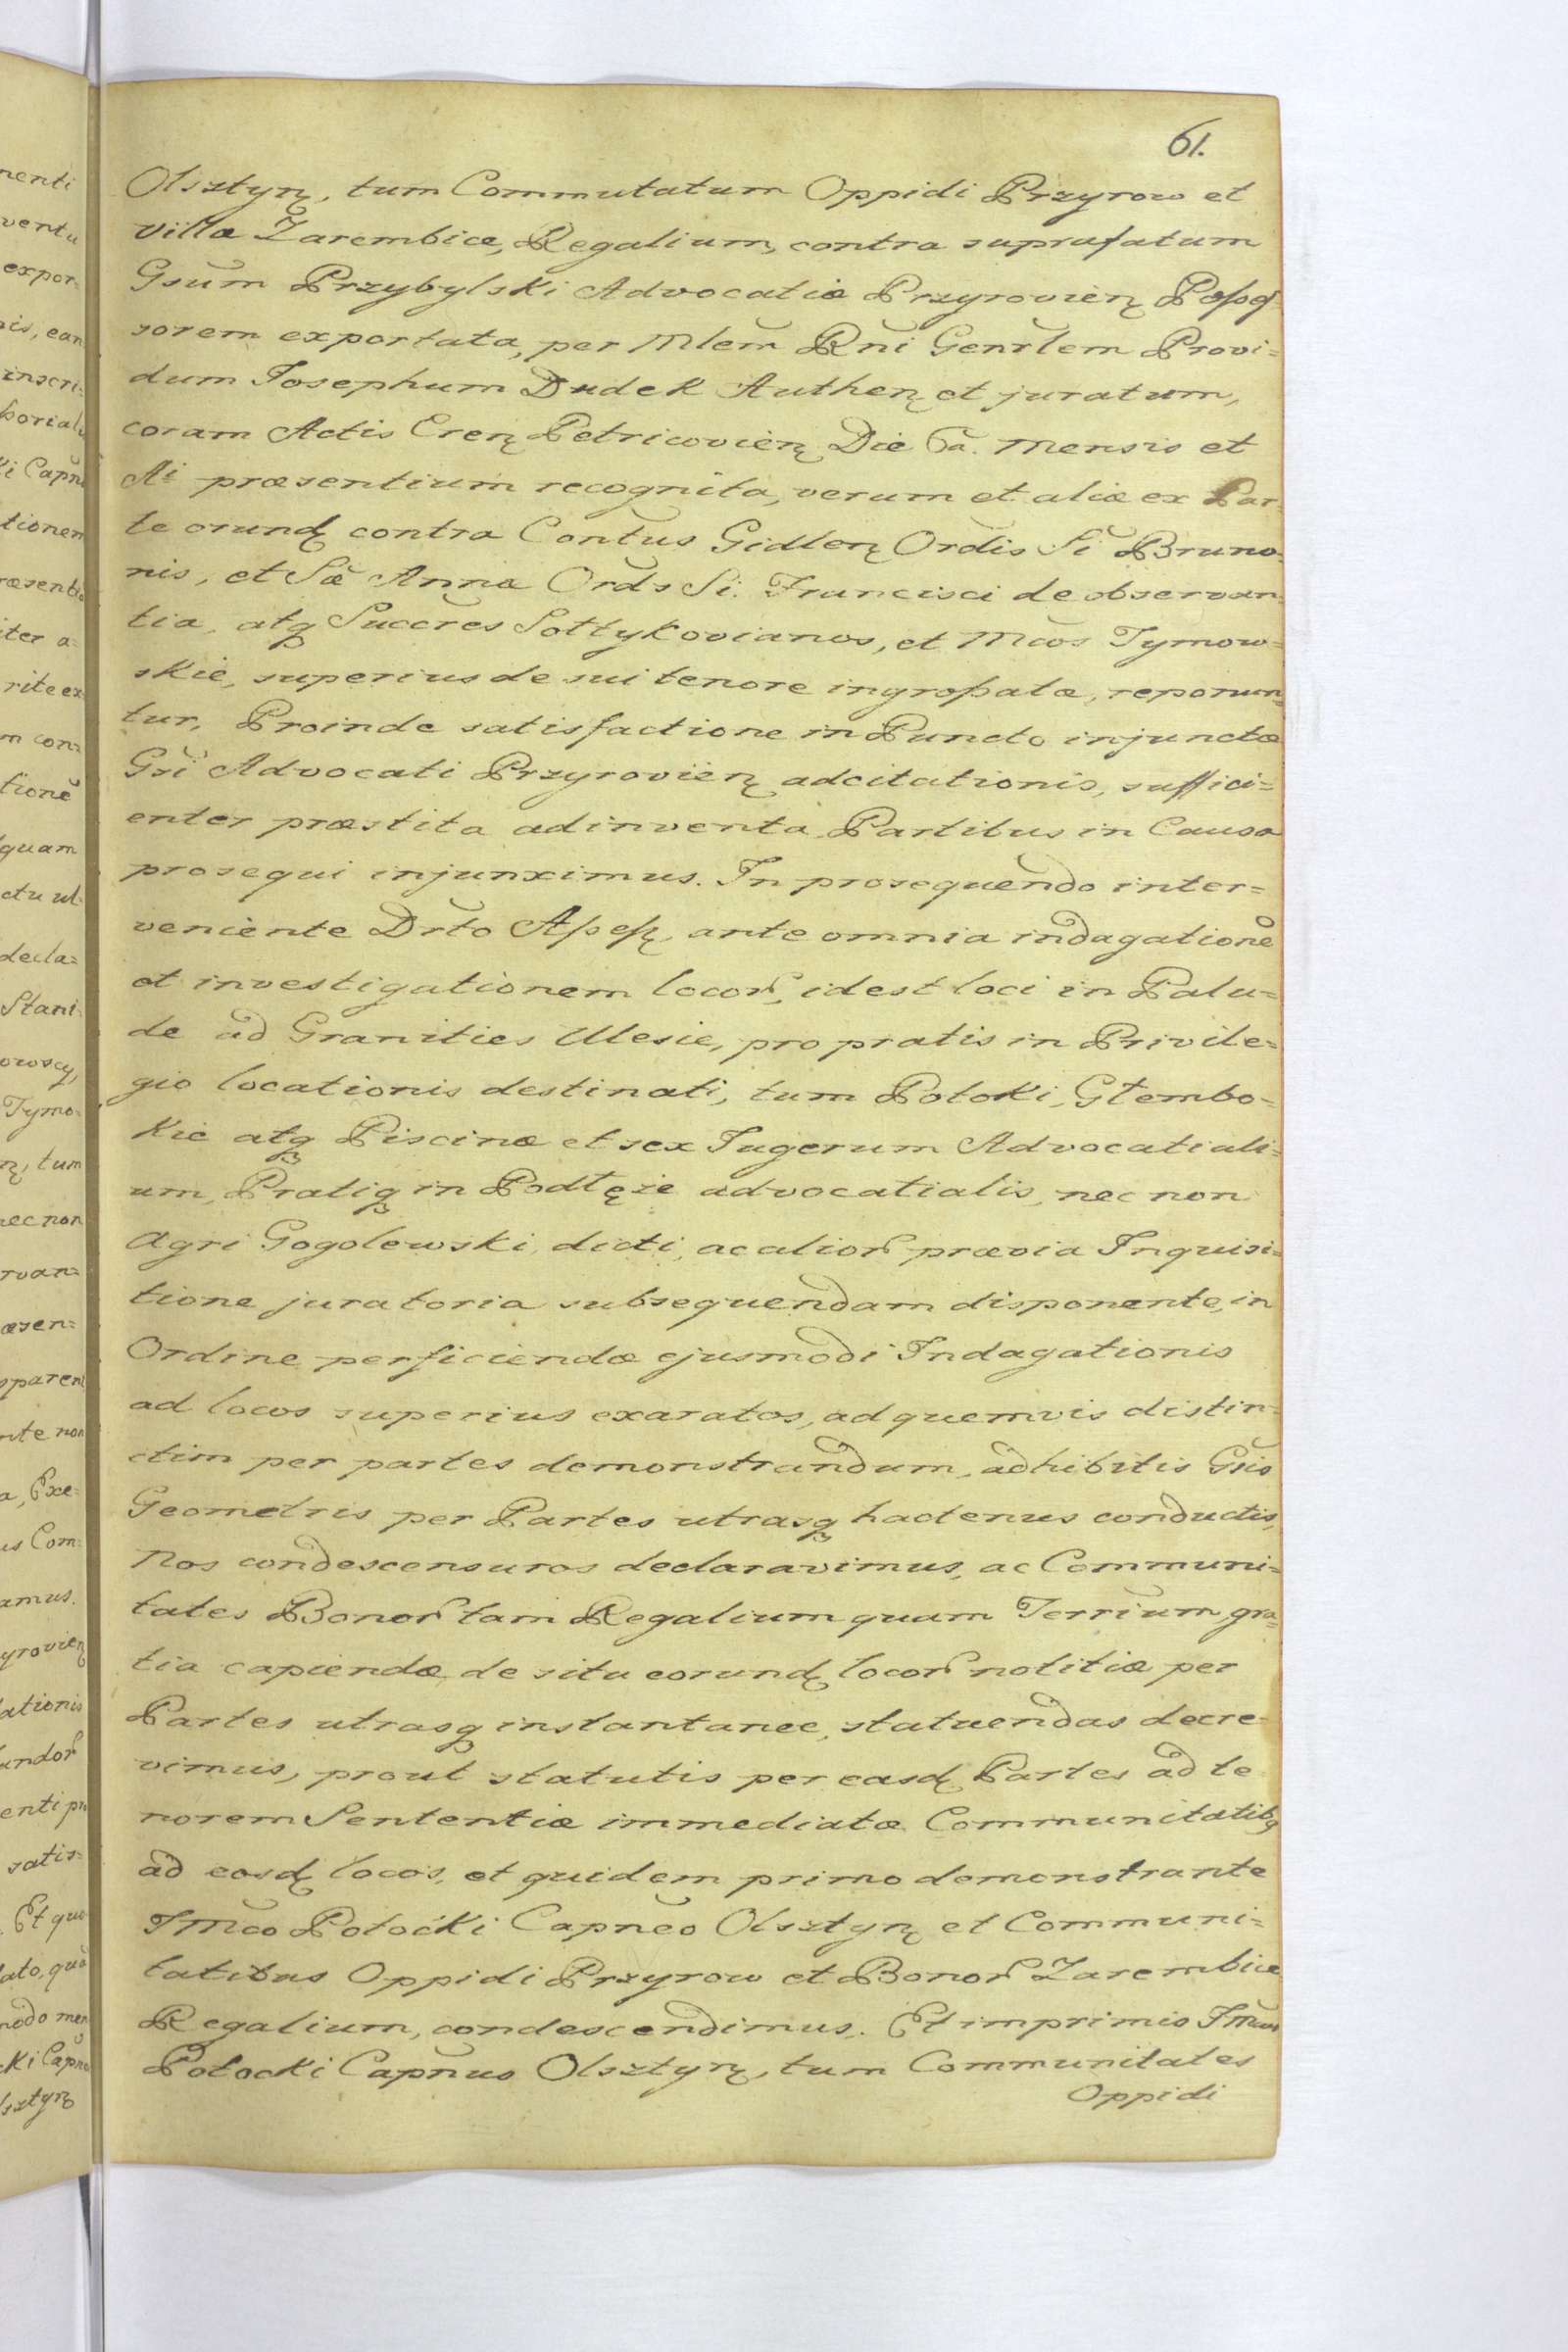 61.
Olsztyn, tum Commutatum Oppidi Przyrow et
villæ Zarembice, Regalium, contra suprafatum
Gsum Przybylski Advocatiæ Przyrovien Posses
sorem exportata, per Mlem Rni Genrlem Provi=
dum Josephum Dudek Authen et juratum,
coram Actis Cren Petricovien Die 6a. Mensis et
Ai præsentium recognita, verum et aliæ ex Par
te orund contra Contus Gidlen Ordis Si Bruno=
nis, et Sæ Annæ Ords Si. Francisci de observan=
tia, atq Succres Sołtykovianos, et Mcos Tymow=
skie, superius de sui tenore ingrossatæ, reponun
tur, Proinde satisfactione in Puncto injunctæ
Gsi Advocati Przyrovien adcitationis, suffici=
enter præstita adinventa, Partibus in Causa
prosequi injunximus. In prosequendo inter=
veniente Drto Assess, ante omnia indagatione
et investigationem locor, idest loci in Palu=
de ad Granities Ulesie, pro pratis in Privile=
gio locationis destinati, tum Potoki, Głembo=
kie atq Piscinæ et sex Jugerum Advocatiali=
um, Pratiq in Podłęże advocatialis, nec non
Agri Gogolewski dicti, ac alior prævia Inquisi=
tione juratoria subsequendam disponente, in
Ordine perficiendæ ejusmodi Indagationis
ad locos superius exaratos, ad quemvis distin=
ctim per partes demonstrandum, adhibitis Gsis
Geometris per Partes utrasq hactenus conductis,
Nos condescensuros declaravimus, ac Communi=
tates Bonor tam Regalium quam Terrium gra=
tia capiendæ de situ eorund locor notitiæ per
Partes utrasq instantanee, statuendas decre=
vimus, prout statutis per easd Partes ad te
norem Sententiæ immediatæ Communitatibq
ad eosd locos, et quidem primo demonstrante
JMco Potocki Capneo Olsztyn et Communi=
tatibus Oppidi Przyrow et Bonor Zarembice
Regalium, condescendimus. Et imprimis JMcus
Potocki Capnus Olsztyn, tum Communitates
Oppidi